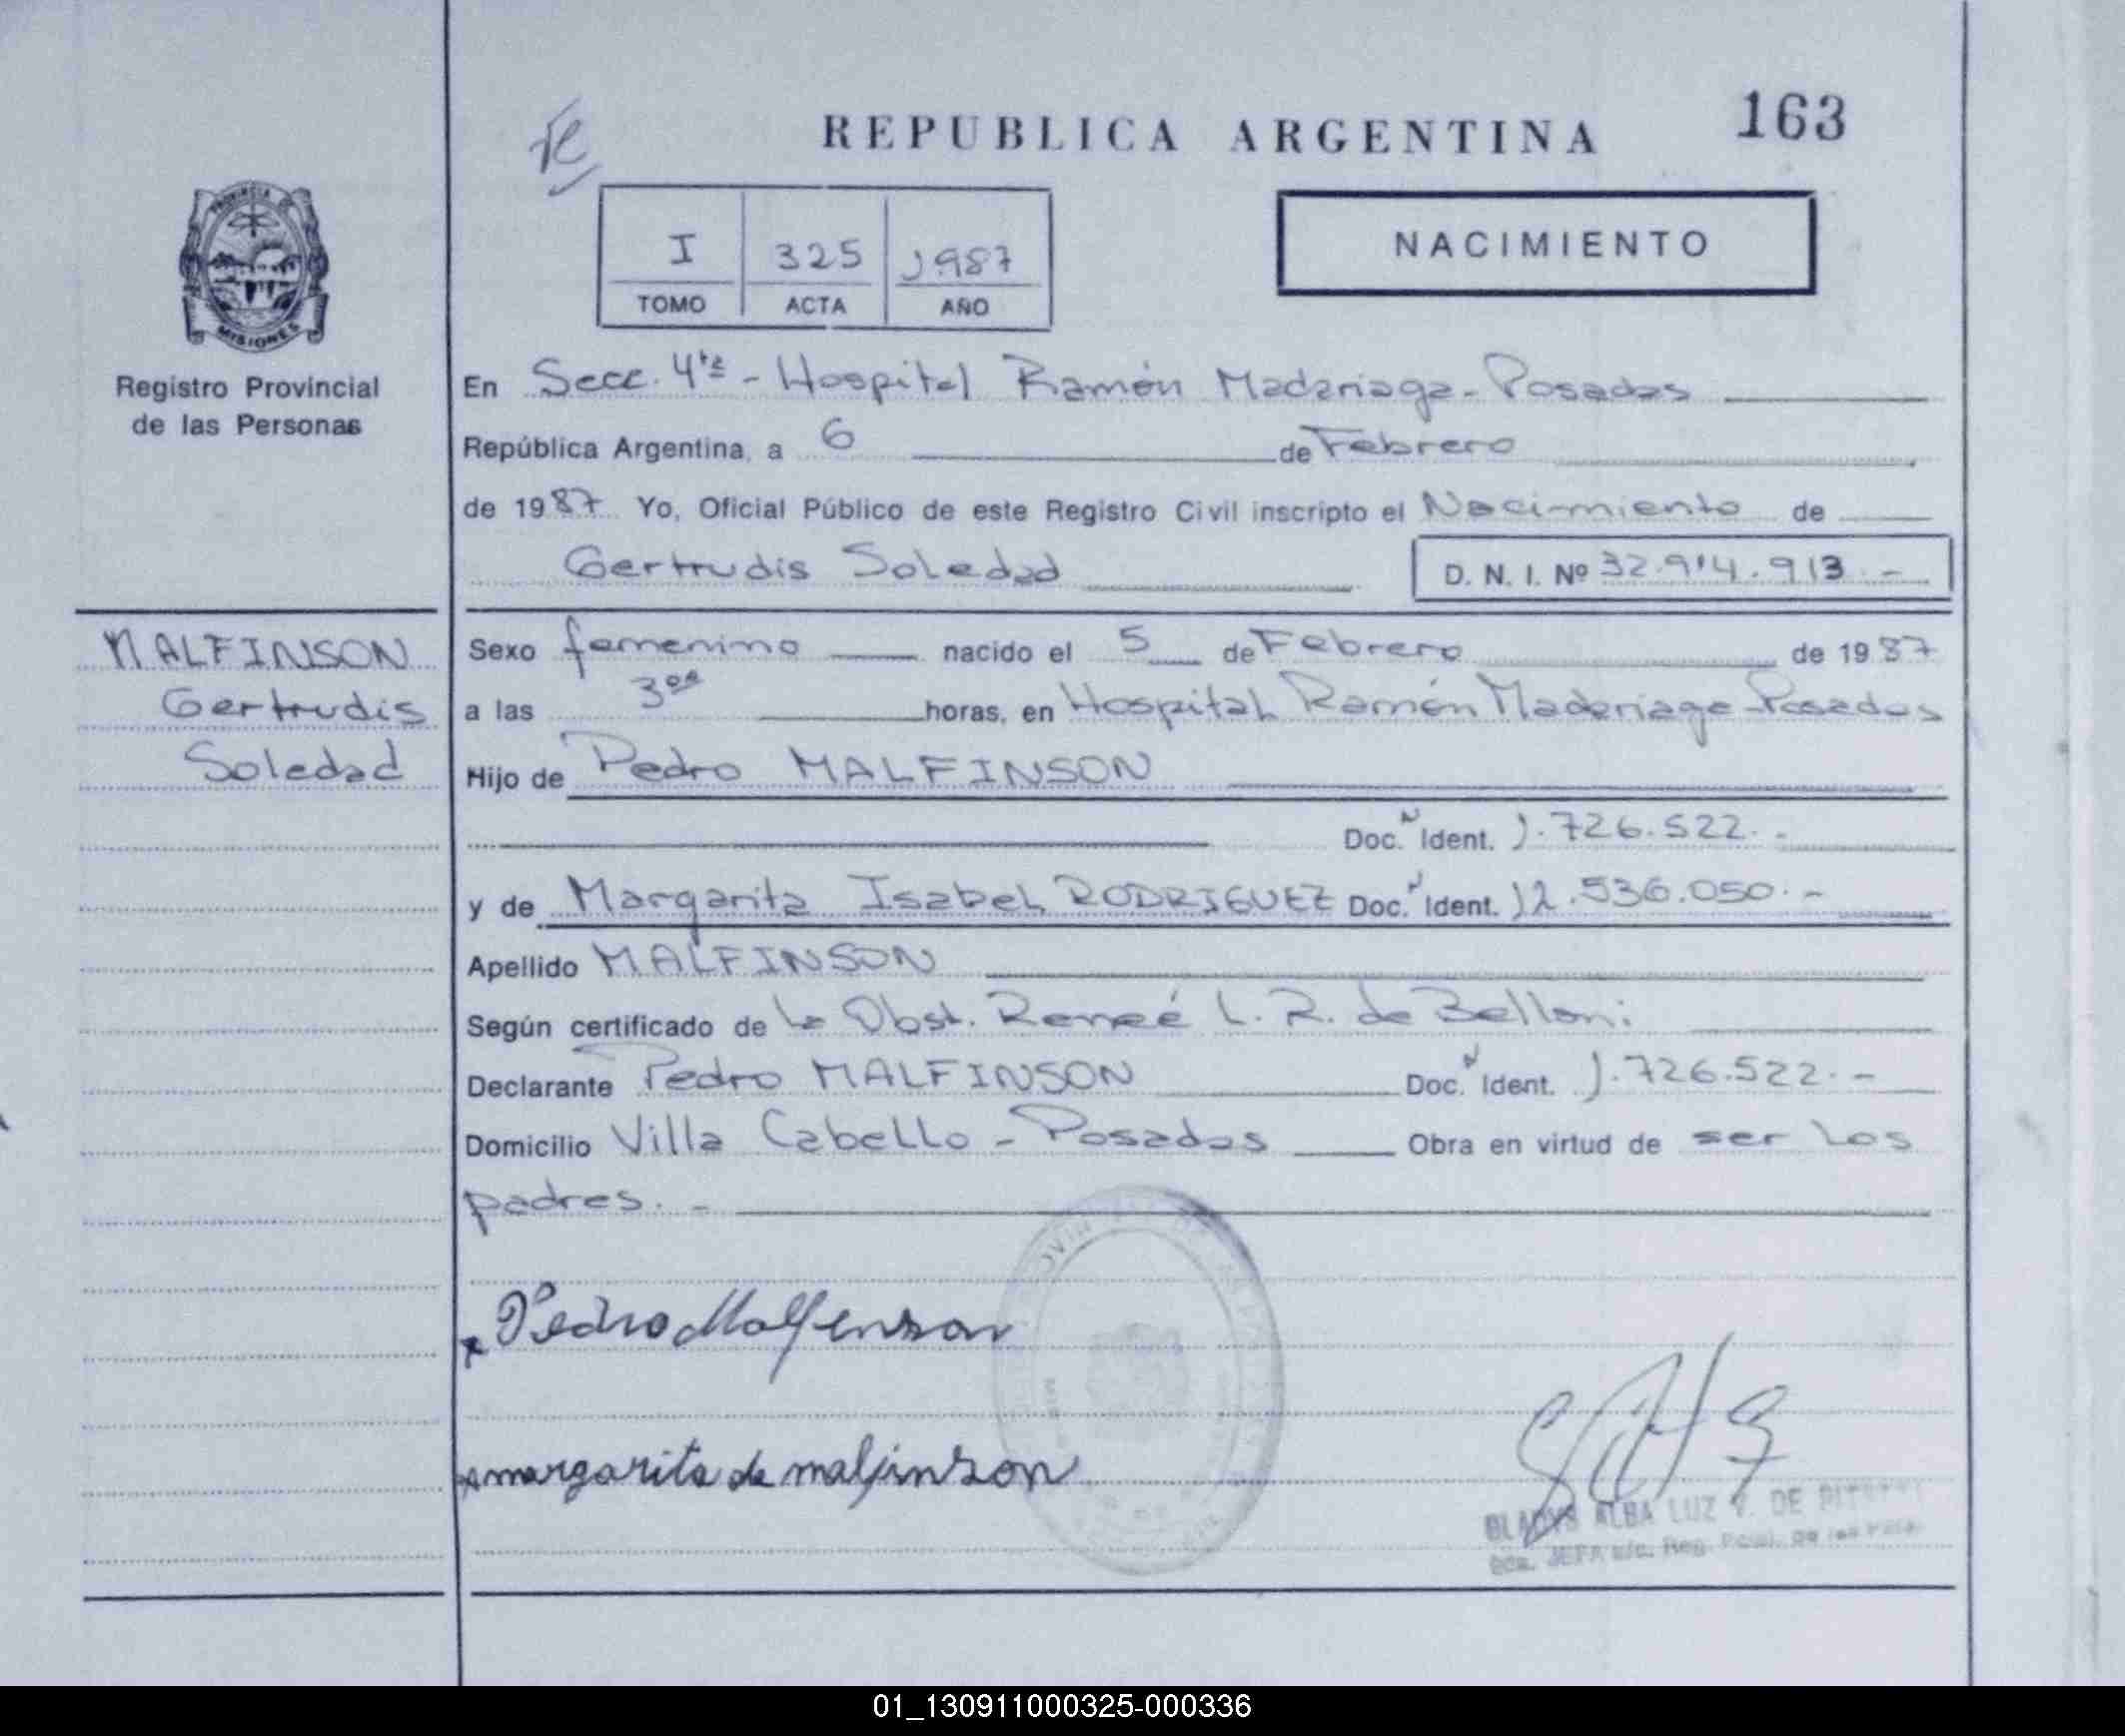 163
REPUBLICA ARGENTINA
NACIMIENTO
I 325 1987
TOMO ACTA AÑO
PROVINCIA DE
MISIONES
Registro Provincial
de las Personas
En Secc. 4ta - Hospital Ramón Madariaga - Posadas
República Argentina, a 6 de Febrero
de 1987 Yo, Oficial Público de este Registro Civil inscripto el Nacimiento de
Gertrudis Soledad D. N. I. Nº 32.914.913.-
MALFINSON
Gertrudis
Soledad
Sexo femenino nacido el 5 de Febrero de 1987
a las 3oo horas, en Hospital Ramón Madariaga - Posadas
Hijo de Pedro MALFINSON
Doc. N Ident. 1.726.522.-
y de Margarita Isabel RODRIGUEZ Doc. N Ident. 12.536.050.-
Apellido MALFINSON
Según certificado de la Obst. Reneé L. R. de Belloni
Declarante Pedro MALFINSON Doc. N Ident. 1.726.522.-
Domicilio Villa Cabello - Posadas Obra en virtud de ser los
padres.-
x Pedro Malfenson
x margarita de malfinson
GLADYS ALBA LUZ V. DE
JEFA
01_130911000325-000336